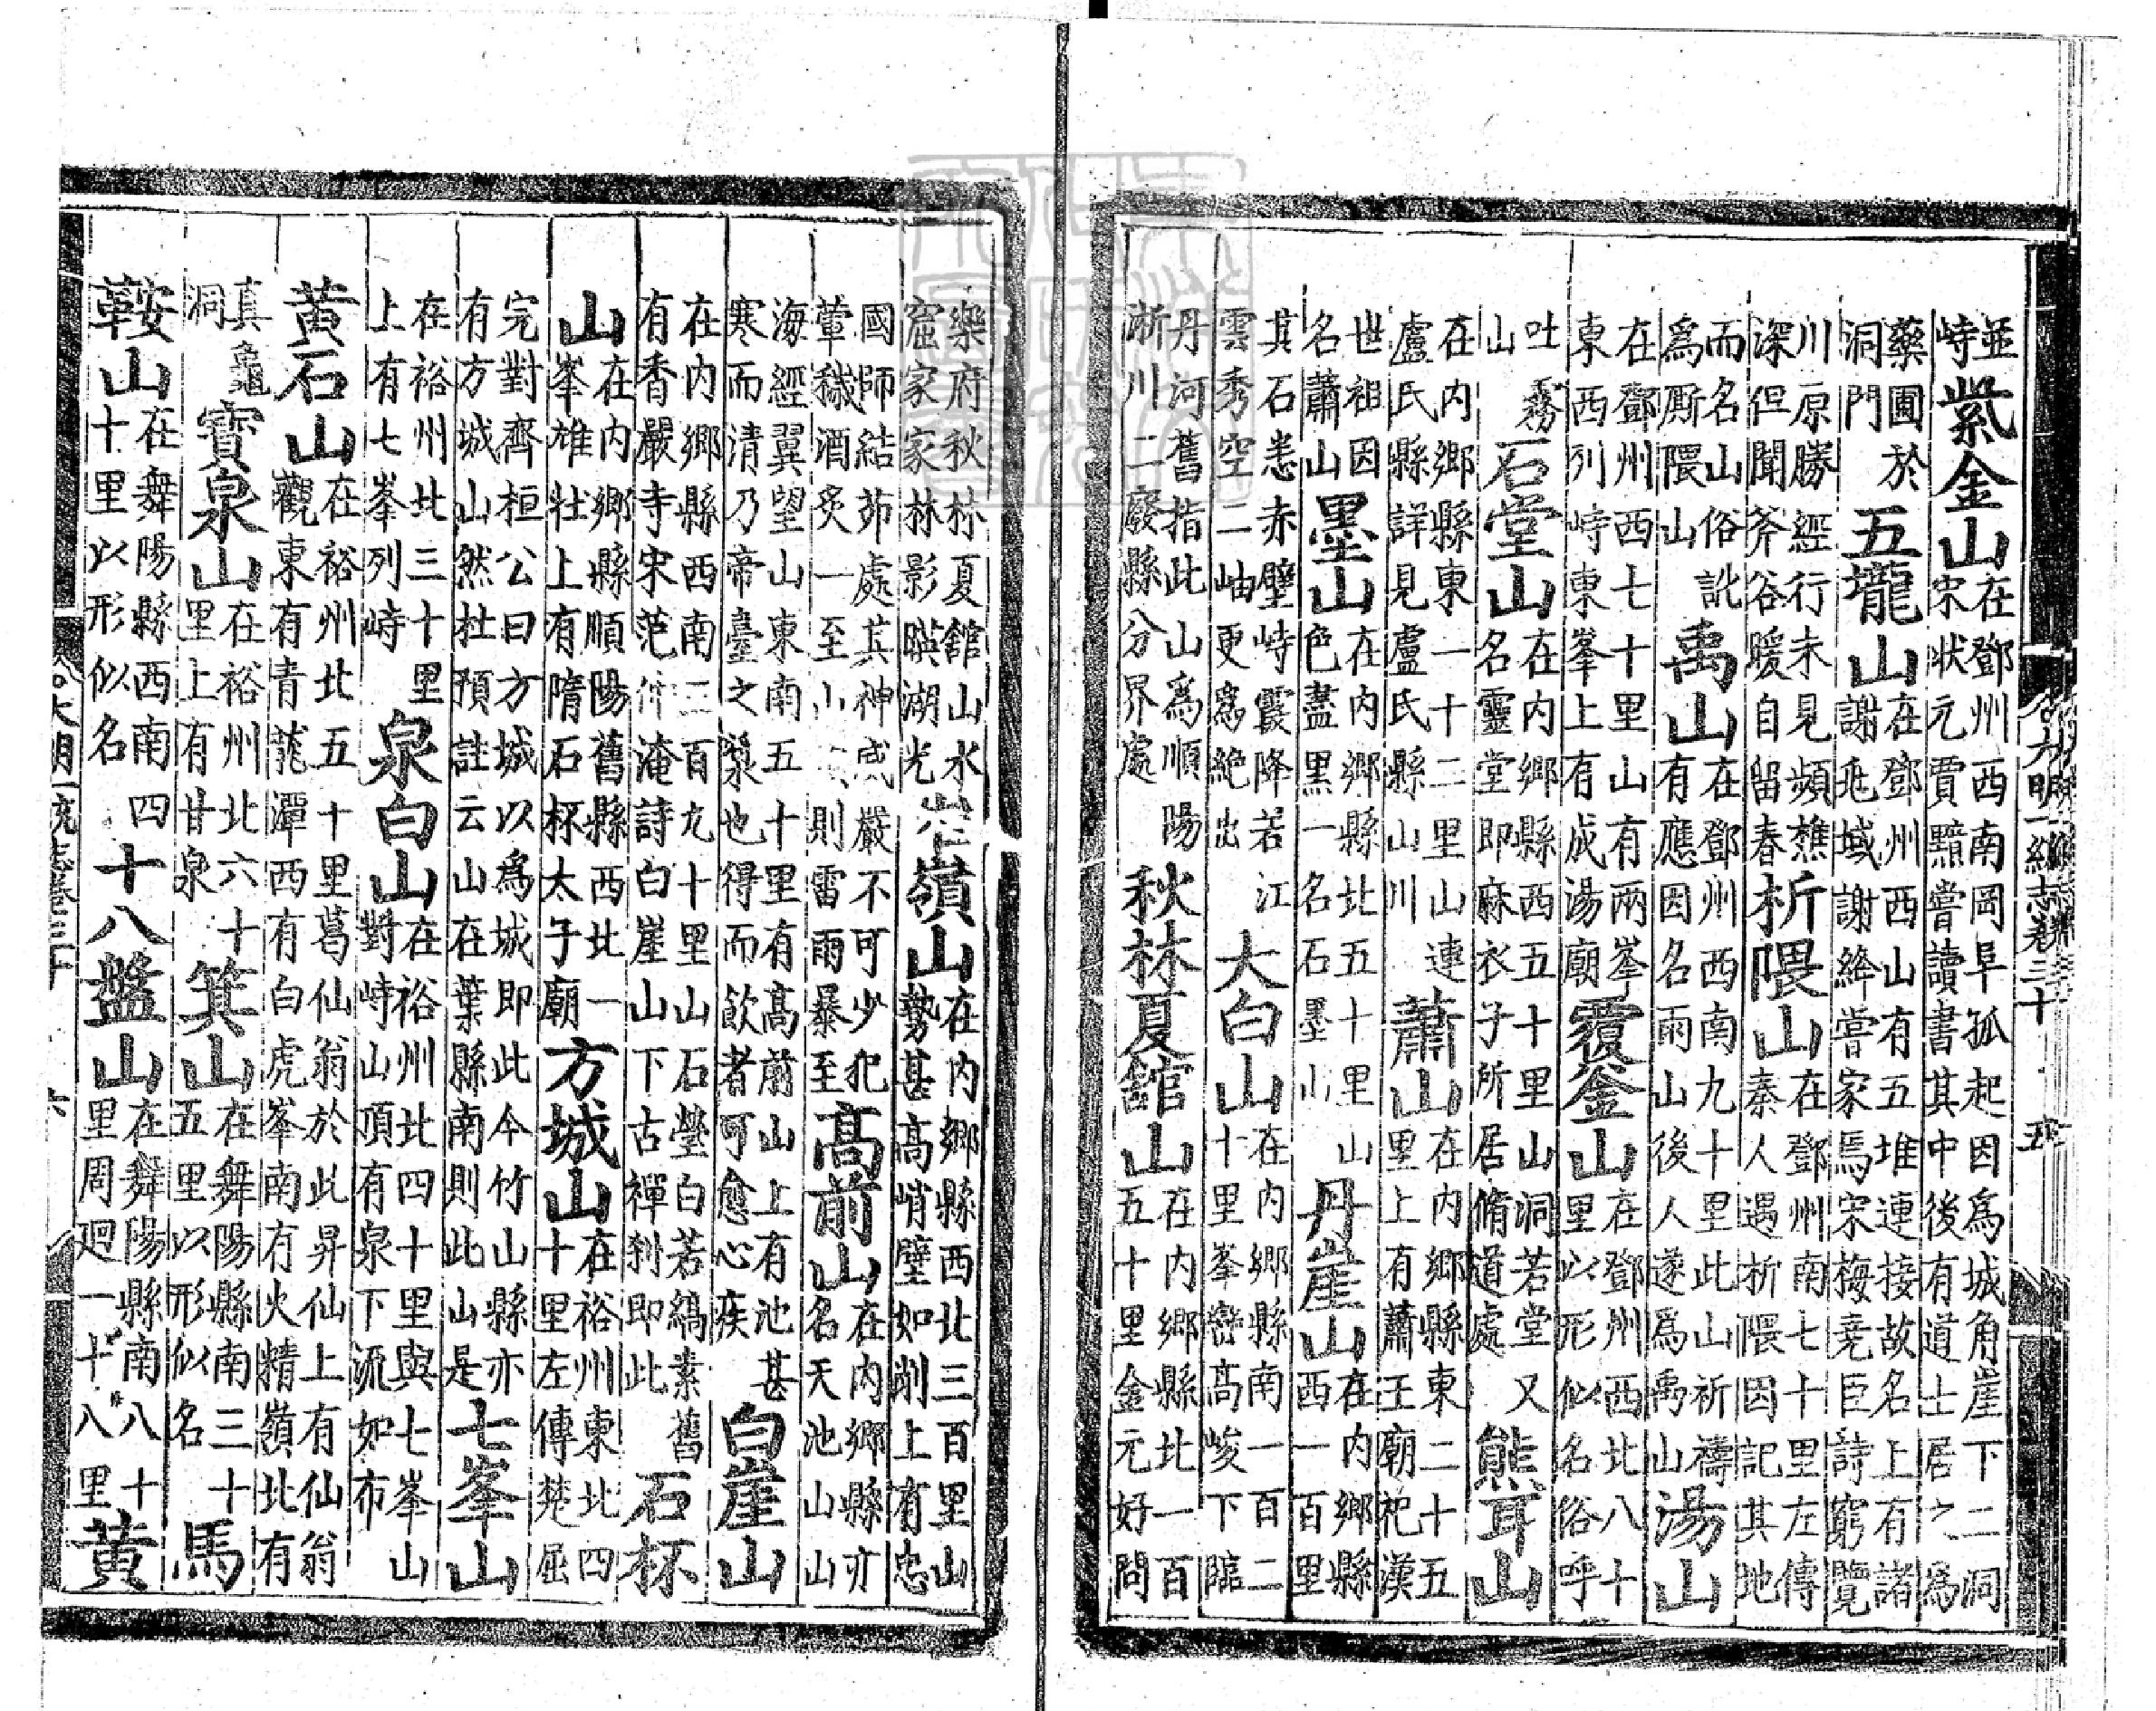 並峙紫金山在鄧州西南岡阜孤起因爲城角崖下二洞宋狀元賈黯嘗讀書其中後有道士居之爲
藥圃於洞門五壠山在鄧州西山有五堆連接故名上有諸謝兆域謝絳嘗家焉宋梅堯臣詩窮覽
川原勝經行未見頻樵深但聞斧谷暖自留春析隈山在鄧州南七十里左傳秦人過析隈因記其地
而名山俗訛爲厮隈山禹山在鄧州西南九十里此山祈禱有應因名雨山後人遂爲禹山湯山
在鄧州西七十里山有兩峯東西列峙東峯上有成湯廟覆釜山在鄧州西北八十里以形似名俗呼
吐霧山石堂山在内鄉縣西五十里山洞若堂又名靈堂即麻衣子所居脩道處熊耳山
在内鄉縣東一十二里山連盧氏縣詳見盧氏縣山川蕭山在内鄉縣東二十五里上有蕭王廟祀漢
世祖因名蕭山墨山在内鄉縣北五十里山色盡黒一名石墨山丹崖山在内鄉縣西一百里
其石悉赤壁峙霞降若江雲秀空二岫更爲絶出大白山在内鄉縣南一百二十里峯巒髙峻下臨
丹河舊指此山爲順陽淅川二廢縣分界處秋林夏舘山在内鄉縣北一百五十里金元好問
樂府秋林夏舘山水窟家家林影暎湖光嶺山在内鄉縣西北三百里山勢甚髙峭壁如削上有忠
國師結茆處其神威嚴不可少犯葷穢酒炙一至則雷雨暴至髙前山在内鄉縣亦名天池山山
海經翼望山東南五十里有髙前山上有池甚寒而清乃帝臺之漿也得而飲者可愈心疾白崖山
在内鄉縣西南二百九十里山石瑩白若縞素舊有香嚴寺宋范仲淹詩白崖山下古禪刹即此石杯
山在内鄉縣順陽舊縣西北一峯雄壯上有隋石杯太子廟方城山在裕州東北四十里左傳楚屈
完對齊桓公曰方城以爲城即此今竹山縣亦有方城山然杜預註云山在葉縣南則此山是七峯山
在裕州北三十里上有七峯列峙泉白山在裕州北四十里與七峯山對峙山頂有泉下流如布
黄石山在裕州北五十里葛仙翁於此昇仙上有仙翁觀東有青龍潭西有白虎峯南有火精嶺北有
真龜洞寳泉山在裕州北六十里上有甘泉箕山在舞陽縣南三十五里以形似名馬
鞍山在舞陽縣西南四十里以形似名十八盤山在舞陽縣南八十里周廻一十八里黄
大明一統志卷三十
六